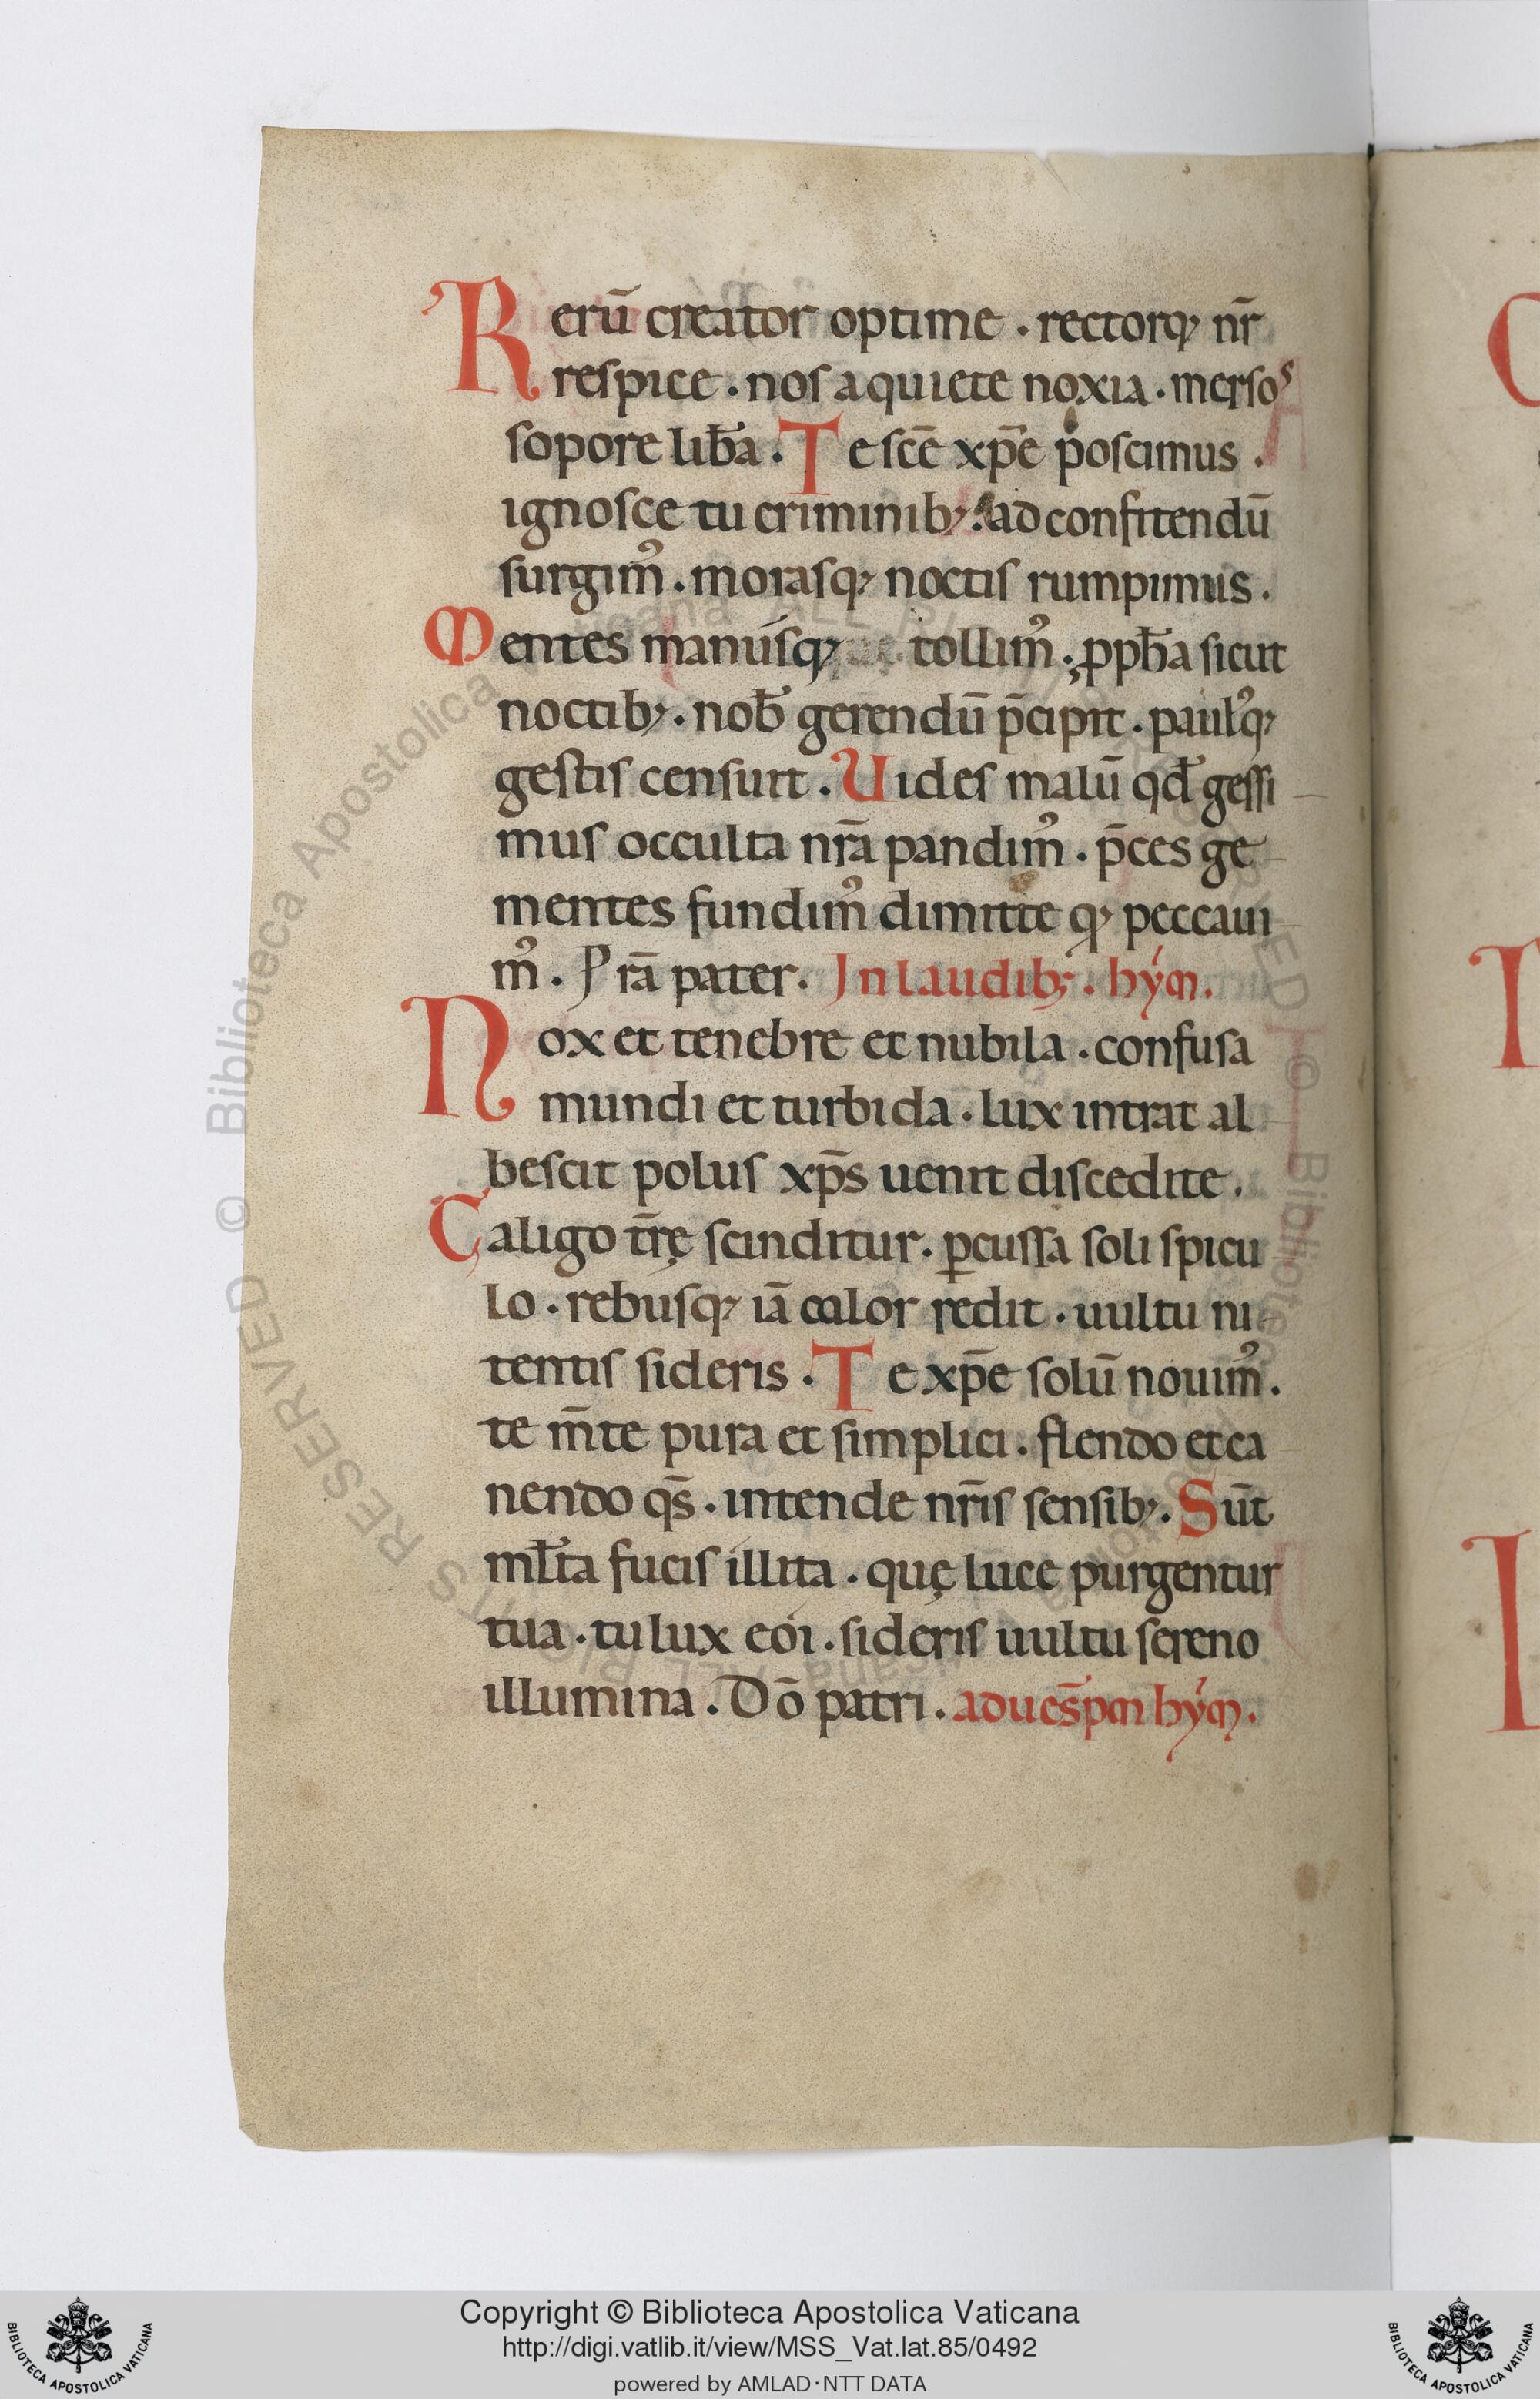 Rerū creator optime . rectorq; nr̄
respice . nos a quiete noxia . mersos
sopore lib̄a . Te sc̄e xp̄e poscimus .
ignosce tu criminib; . ad confitendū
surgim᾽ . morasq; noctis rumpimus .
Mentes manusq; tollim᾽ . ꝓph̄a sicut
noctib; . nob̄ gerendū p̄cipit . paul᾽q;
gestis censuit . Uides malū qd̄ gessi
mus occulta nr̄a pandim᾽ . p̄ces ge
mentes fundim᾽ dimitte q; peccaui
m᾽ . P rā pater . In laudib; . hym̄.
Nox et tenebre et nubila . confusa
mundi et turbida . lux intrat al
bescit polus xp̄s uenit discedite .
Caligo t̄rę scinditur . ꝑcussa soli spicu
lo . rebusq; iā calor redit . uultu ni
tentis sideris . Te xp̄e solū nouim᾽ .
te m̄te pura et simplici . flendo et ca
nendo qs̄ . intende nr̄is sensib; . Sūt
ml̄ta fucis illita . quę luce purgentur
tua . tu lux eói . sideris uultu sereno
illumina . Dō patri . ad ues̄pm hym̄.
Copyright © Biblioteca Apostolica Vaticana
http://digi.vatlib.it/view/MSS_Vat.lat.85/0492
powered by AMLAD·NTT DATA
BIBLIOTECA APOSTOLICA VATICANA
BIBLIOTECA APOSTOLICA VATICANA